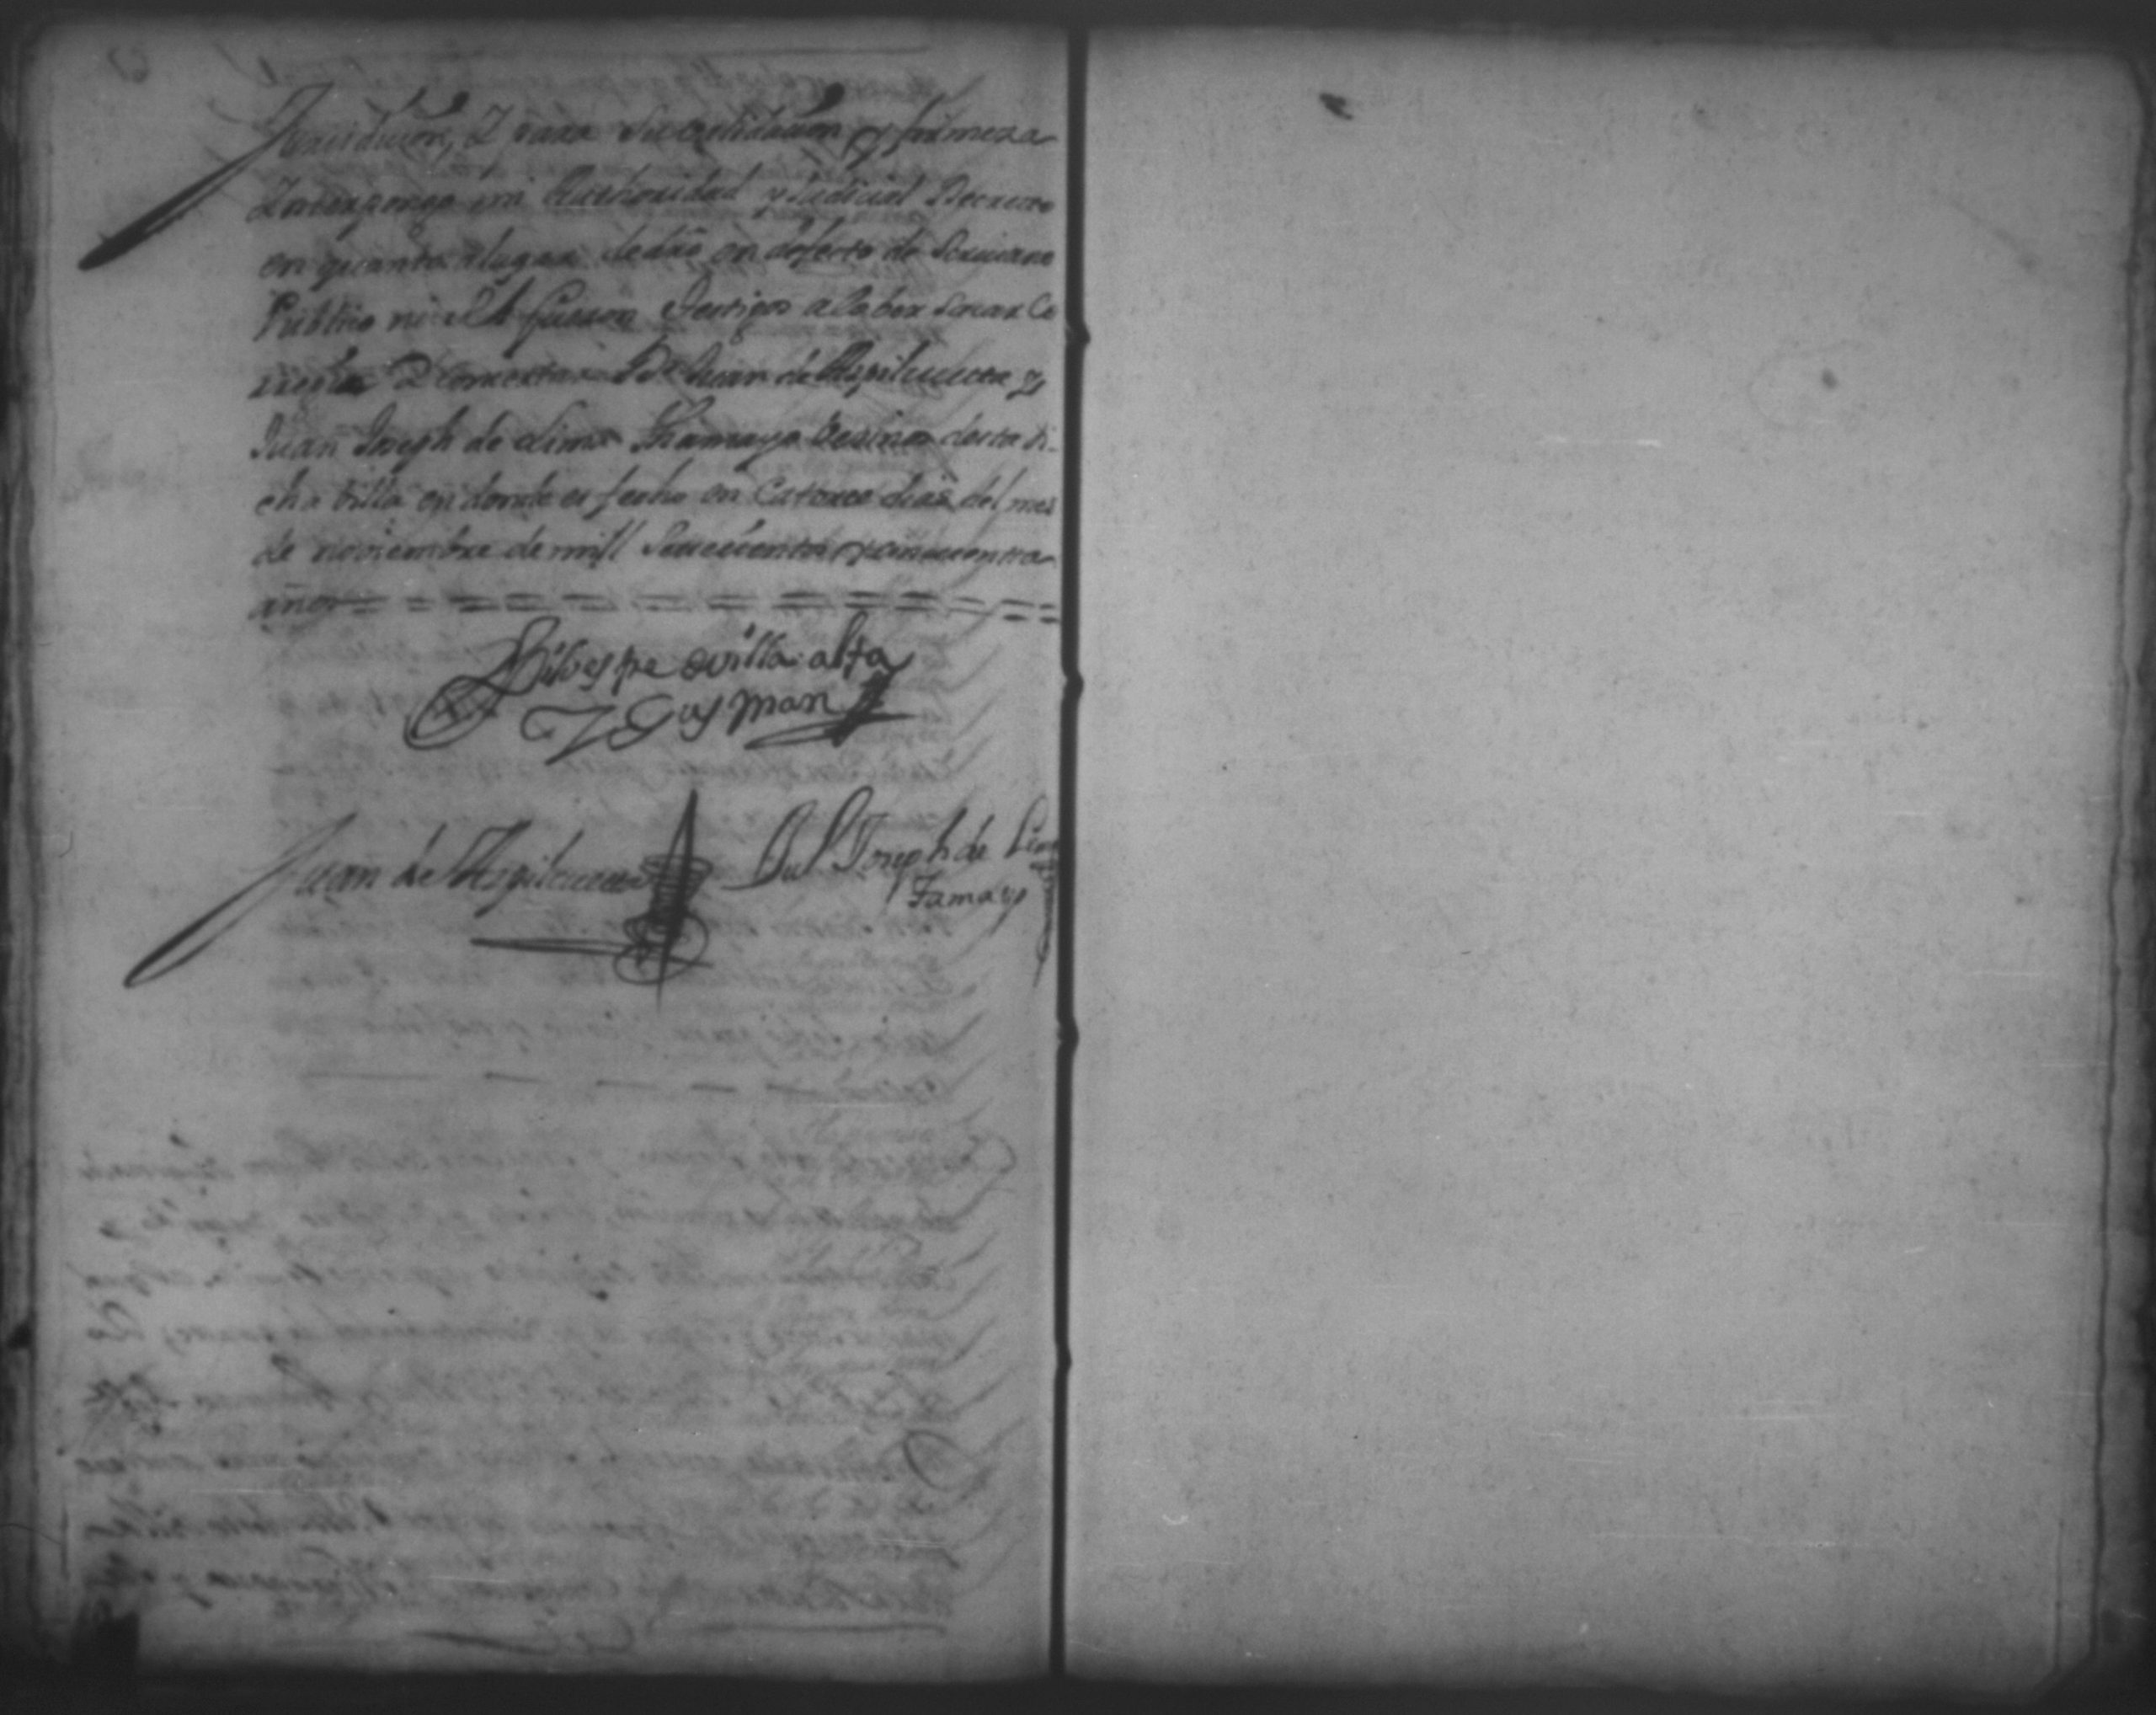 Jurisdiccion, Y para Su validacion y firmeza
Ynterpongo mi Authoridad y Judicial Decreto
en quanto a lugar de dro en defecto de Scrivano
Publico ni Rl fueron Testigos a lo ber Sacar Co
rregir Y Concertar Dn Juan de Aspilcueta y
Juan Joseph de Lima Thamayo Vecinos desta di-
cha Villa en donde es fecho en Catorce dias del mes
de noviembre de mill Setecientos y cinquenta
años
Silvestre de villa alta
Y Gusman
Juan de Aspilcueta
Joseph de Lim
Tamayo